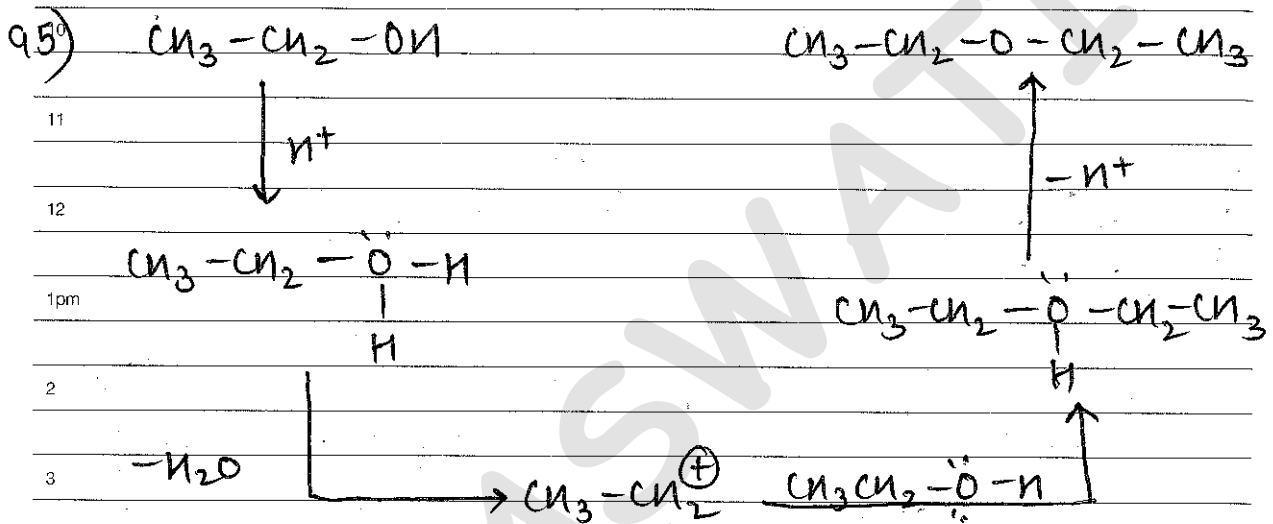 95) CH3-CH2-OH CH3-CH2-O-CH2-CH3
11
H+ -H+
12
CH3-CH2-Ö-H
1pm
CH3-CH2-Ö-CH2-CH3
H
H
2
-H2O
3
CH3-CH2⊕ CH3CH2-Ö-H
ASWATI